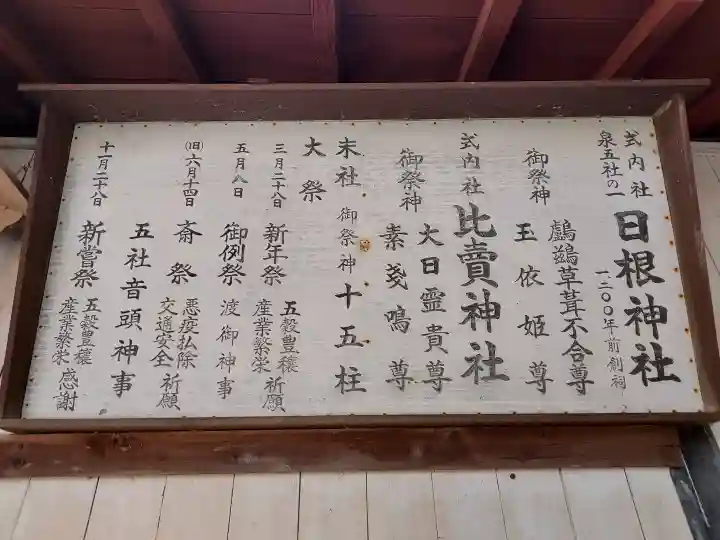 式内社
泉五社の一
日根神社
一二〇〇年前創祠
御祭神
鸕鷀草葺不合尊
玉依姫尊
式内社
比賣神社
御祭神
大日霊貴尊
素戔鳴尊
末社 御祭神 十五柱
大祭
三月二十八日 新年祭 五穀豊穣 産業繁栄 祈願
五月八日 御例祭 渡御神事
(旧)六月十四日 斎祭 悪疫払除 交通安全 祈願
五社音頭神事
十一月二十八日 新嘗祭 五穀豊穣 産業繁栄 感謝